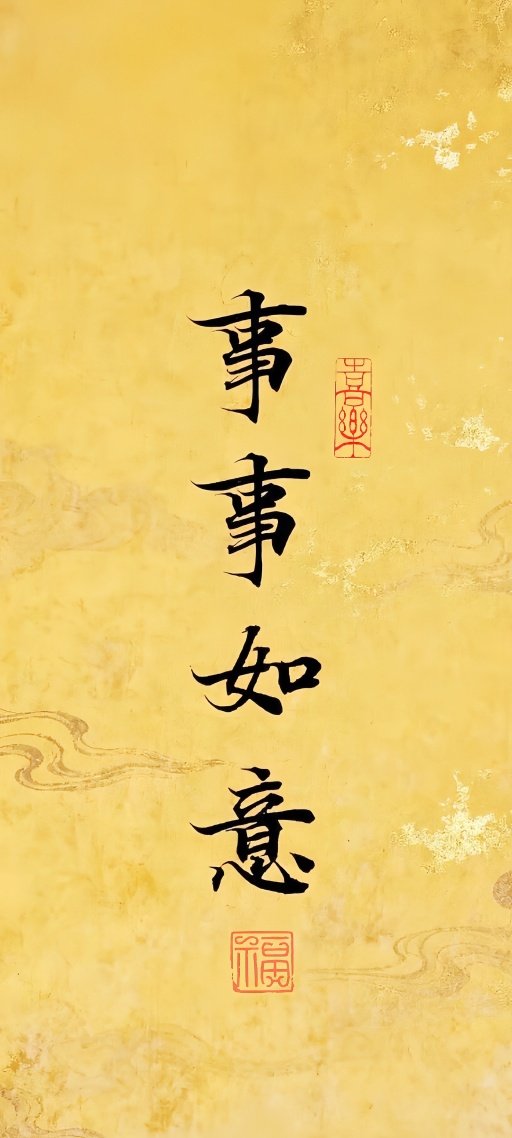 事事如意
喜樂
福